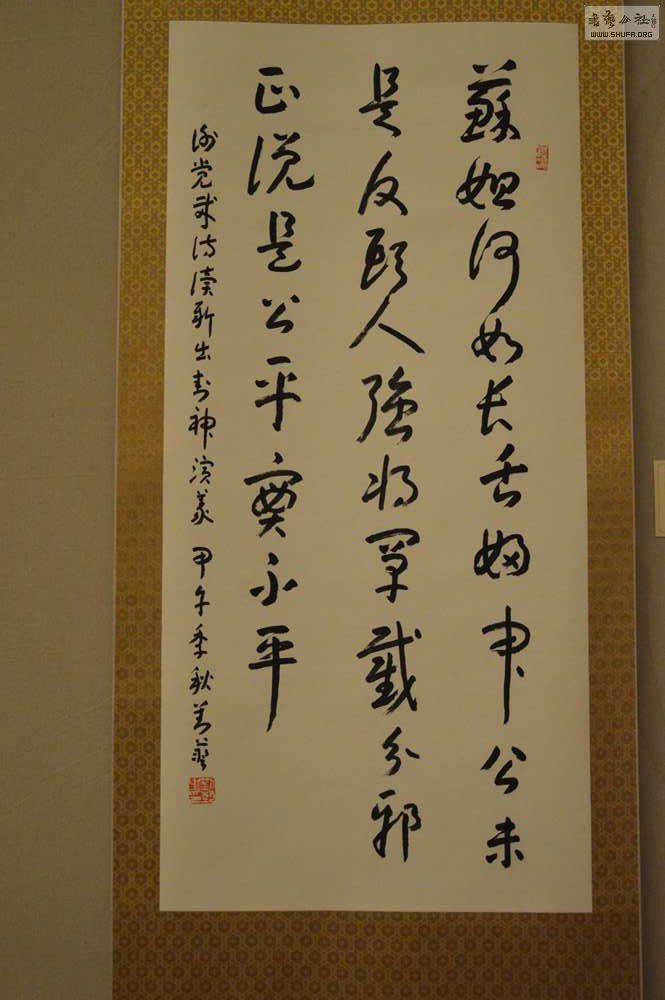 書藝公社
WWW.SHUFA.ORG
蘇妲何如長舌婦申公未
是反頸人強將闡截分邪
正說是公平實不平
謝覺哉詩讀新出封神演義 甲午季秋